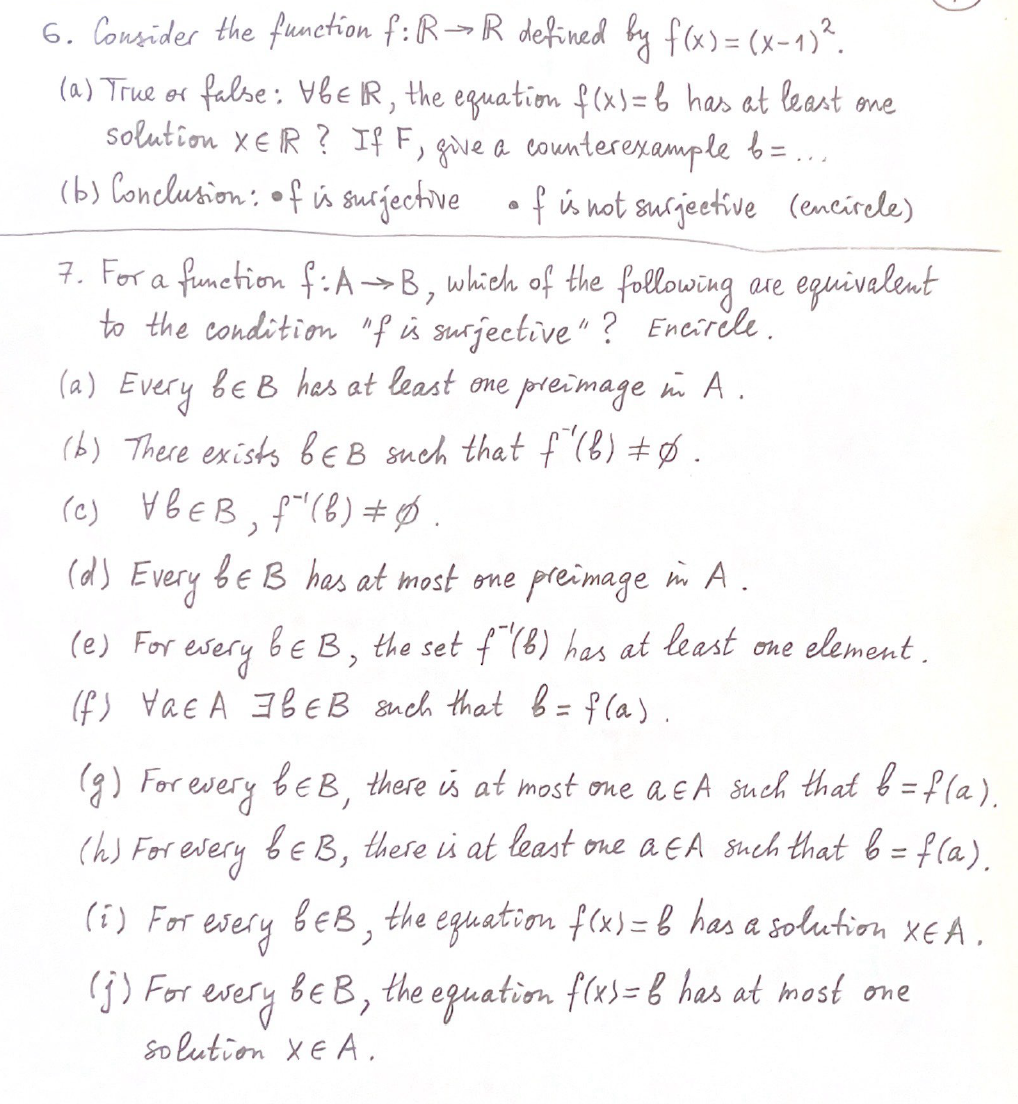 6. Consider the function f: ℝ→ℝ defined by f(x) = (x-1)².
(a) True or false: ∀b∈ℝ, the equation f(x)=b has at least one
solution x∈ℝ ? If F, give a counterexample b=...
(b) Conclusion: • f is surjective • f is not surjective (encircle)
7. For a function f: A→B, which of the following are equivalent
to the condition "f is surjective" ? Encircle.
(a) Every b∈B has at least one preimage in A.
(b) There exists b∈B such that f⁻¹(b) ≠ ∅.
(c) ∀b∈B, f⁻¹(b) ≠ ∅.
(d) Every b∈B has at most one preimage in A.
(e) For every b∈B, the set f⁻¹(b) has at least one element.
(f) ∀a∈A ∃b∈B such that b = f(a).
(g) For every b∈B, there is at most one a∈A such that b = f(a).
(h) For every b∈B, there is at least one a∈A such that b = f(a).
(i) For every b∈B, the equation f(x)=b has a solution x∈A.
(j) For every b∈B, the equation f(x)=b has at most one
solution x∈A.